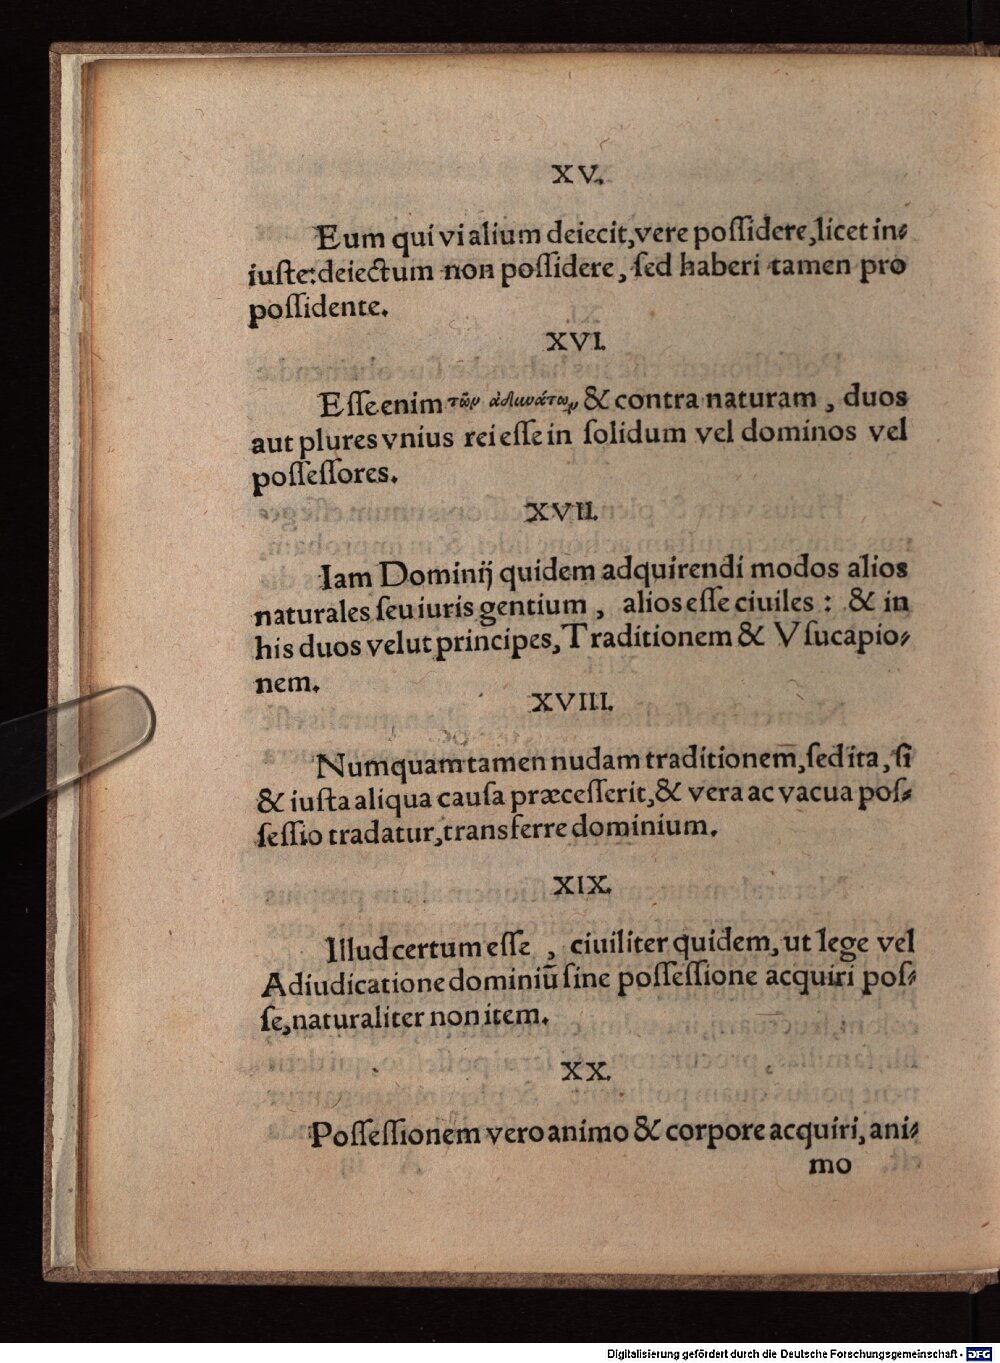 XV.
Eum qui vi alium deiecit, vere poſſidere, licet in⸗
iuſte: deiectum non poſſidere, ſed haberi tamen pro
poſſidente.
XVI.
Eſſe enim τῶν ἀδυνάτων & contra naturam, duos
aut plures vnius rei eſſe in ſolidum vel dominos vel
poſſeſſores.
XVII.
Iam Dominij quidem adquirendi modos alios
naturales ſeu iuris gentium, alios eſſe ciuiles: & in
his duos velut principes, Traditionem & Vſucapio⸗
nem.
XVIII.
Numquam tamen nudam traditionem, ſed ita, ſi
& iuſta aliqua cauſa præceſſerit, & vera ac vacua poſ⸗
ſeſſio tradatur, transferre dominium.
XIX.
Illud certum eſſe, ciuiliter quidem, ut lege vel
Adiudicatione dominiū ſine poſſeſſione acquiri poſ⸗
ſe, naturaliter non item.
XX.
Poſſeſſionem vero animo & corpore acquiri, ani⸗
mo
Digitalisierung gefördert durch die Deutsche Forschungsgemeinschaft - DFG